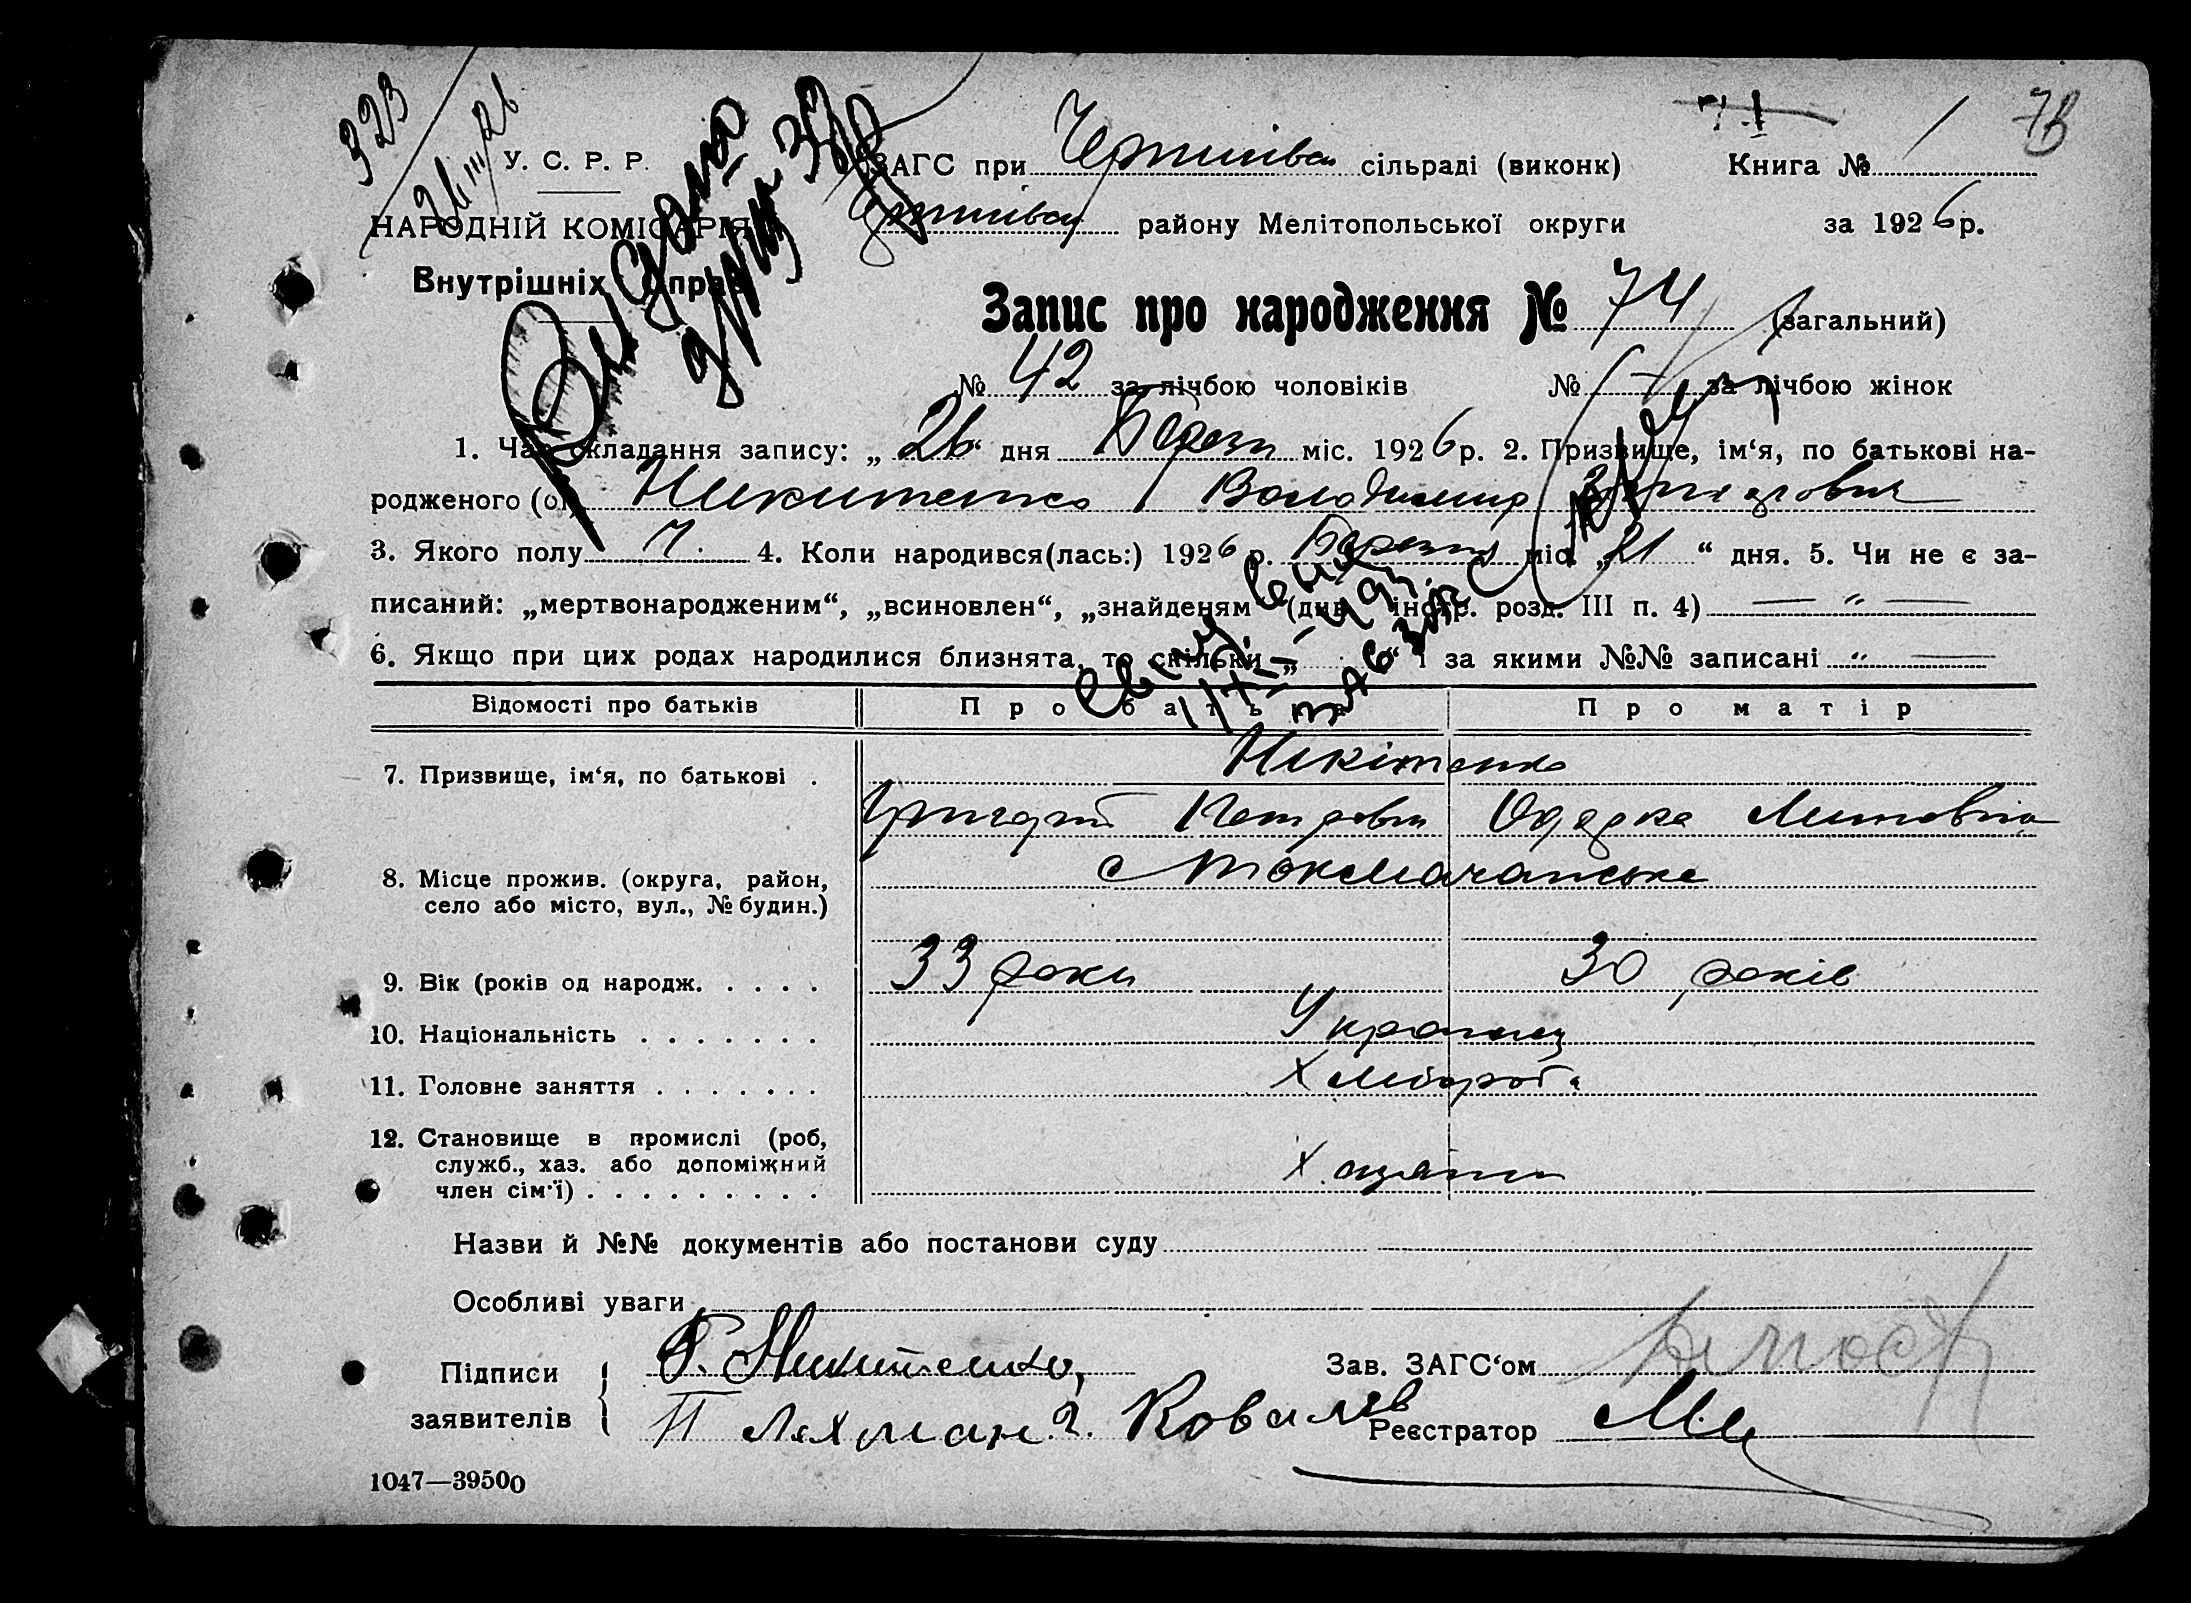 323
26/III 26
73
У. С. Р. Р. ЗАГС при сільраді (виконк) Книга № 1
НАРОДНІЙ КОМІСАРІЯТ району Мелітопольської округи за 1926 р.
Внутрішніх Справ
Запис про народження № 74 (загальний)
№ 42 за лічбою чоловіків № — за лічбою жінок
1. Час складання запису: „26“ дня міс. 1926 р. 2. Призвище, ім‘я, по батькові на-
родженого (ої) Никитенко Володимир
3. Якого полу Ч. 4. Коли народився(лась:) 1926 р. Березня міс. „21“ дня. 5. Чи не є за-
писаний: „мертвонародженим“, „всиновлен“, „знайденям“ (див. інстр. розд. III п. 4) — „ —
6. Якщо при цих родах народилися близнята, то скільки „ “ і за якими №№ записані „ —
Відомості про батьків Про батька Про матір
7. Призвище, ім‘я, по батькові . Нікітенко
Григорій Петрович Одарка
8. Місце прожив. (округа, район, с Токмачанське
село або місто, вул., № будин.)
9. Вік (років од народж. . . . . 33 роки 30 років
10. Національність . . . . . . . Українец
11. Головне заняття . . . . . . . Хлібороб
12. Становище в промислі (роб,
служб., хаз. або допоміжний
член сім‘ї) . . . . . . . . . Хазяїн
Назви й №№ документів або постанови суду
Особливі уваги
Підписи Г. Никитенко, Зав. ЗАГС‘ом
заявителів Ковалів Реєстратор
1047—39500